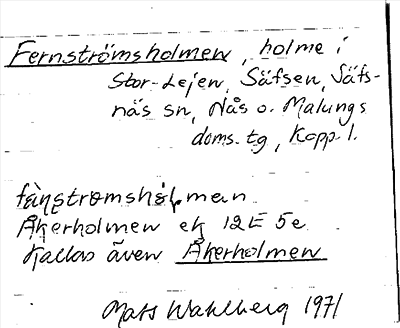 Fernströmsholmen, holme i
Stor-Lejen, Säfsen, Säfs-
näs sn, Nås o. Malungs
doms. tg, Kopp. l.
Åkerholmen ek 12E 5e
Kallas även Åkerholmen
Mats Wahlberg 1971